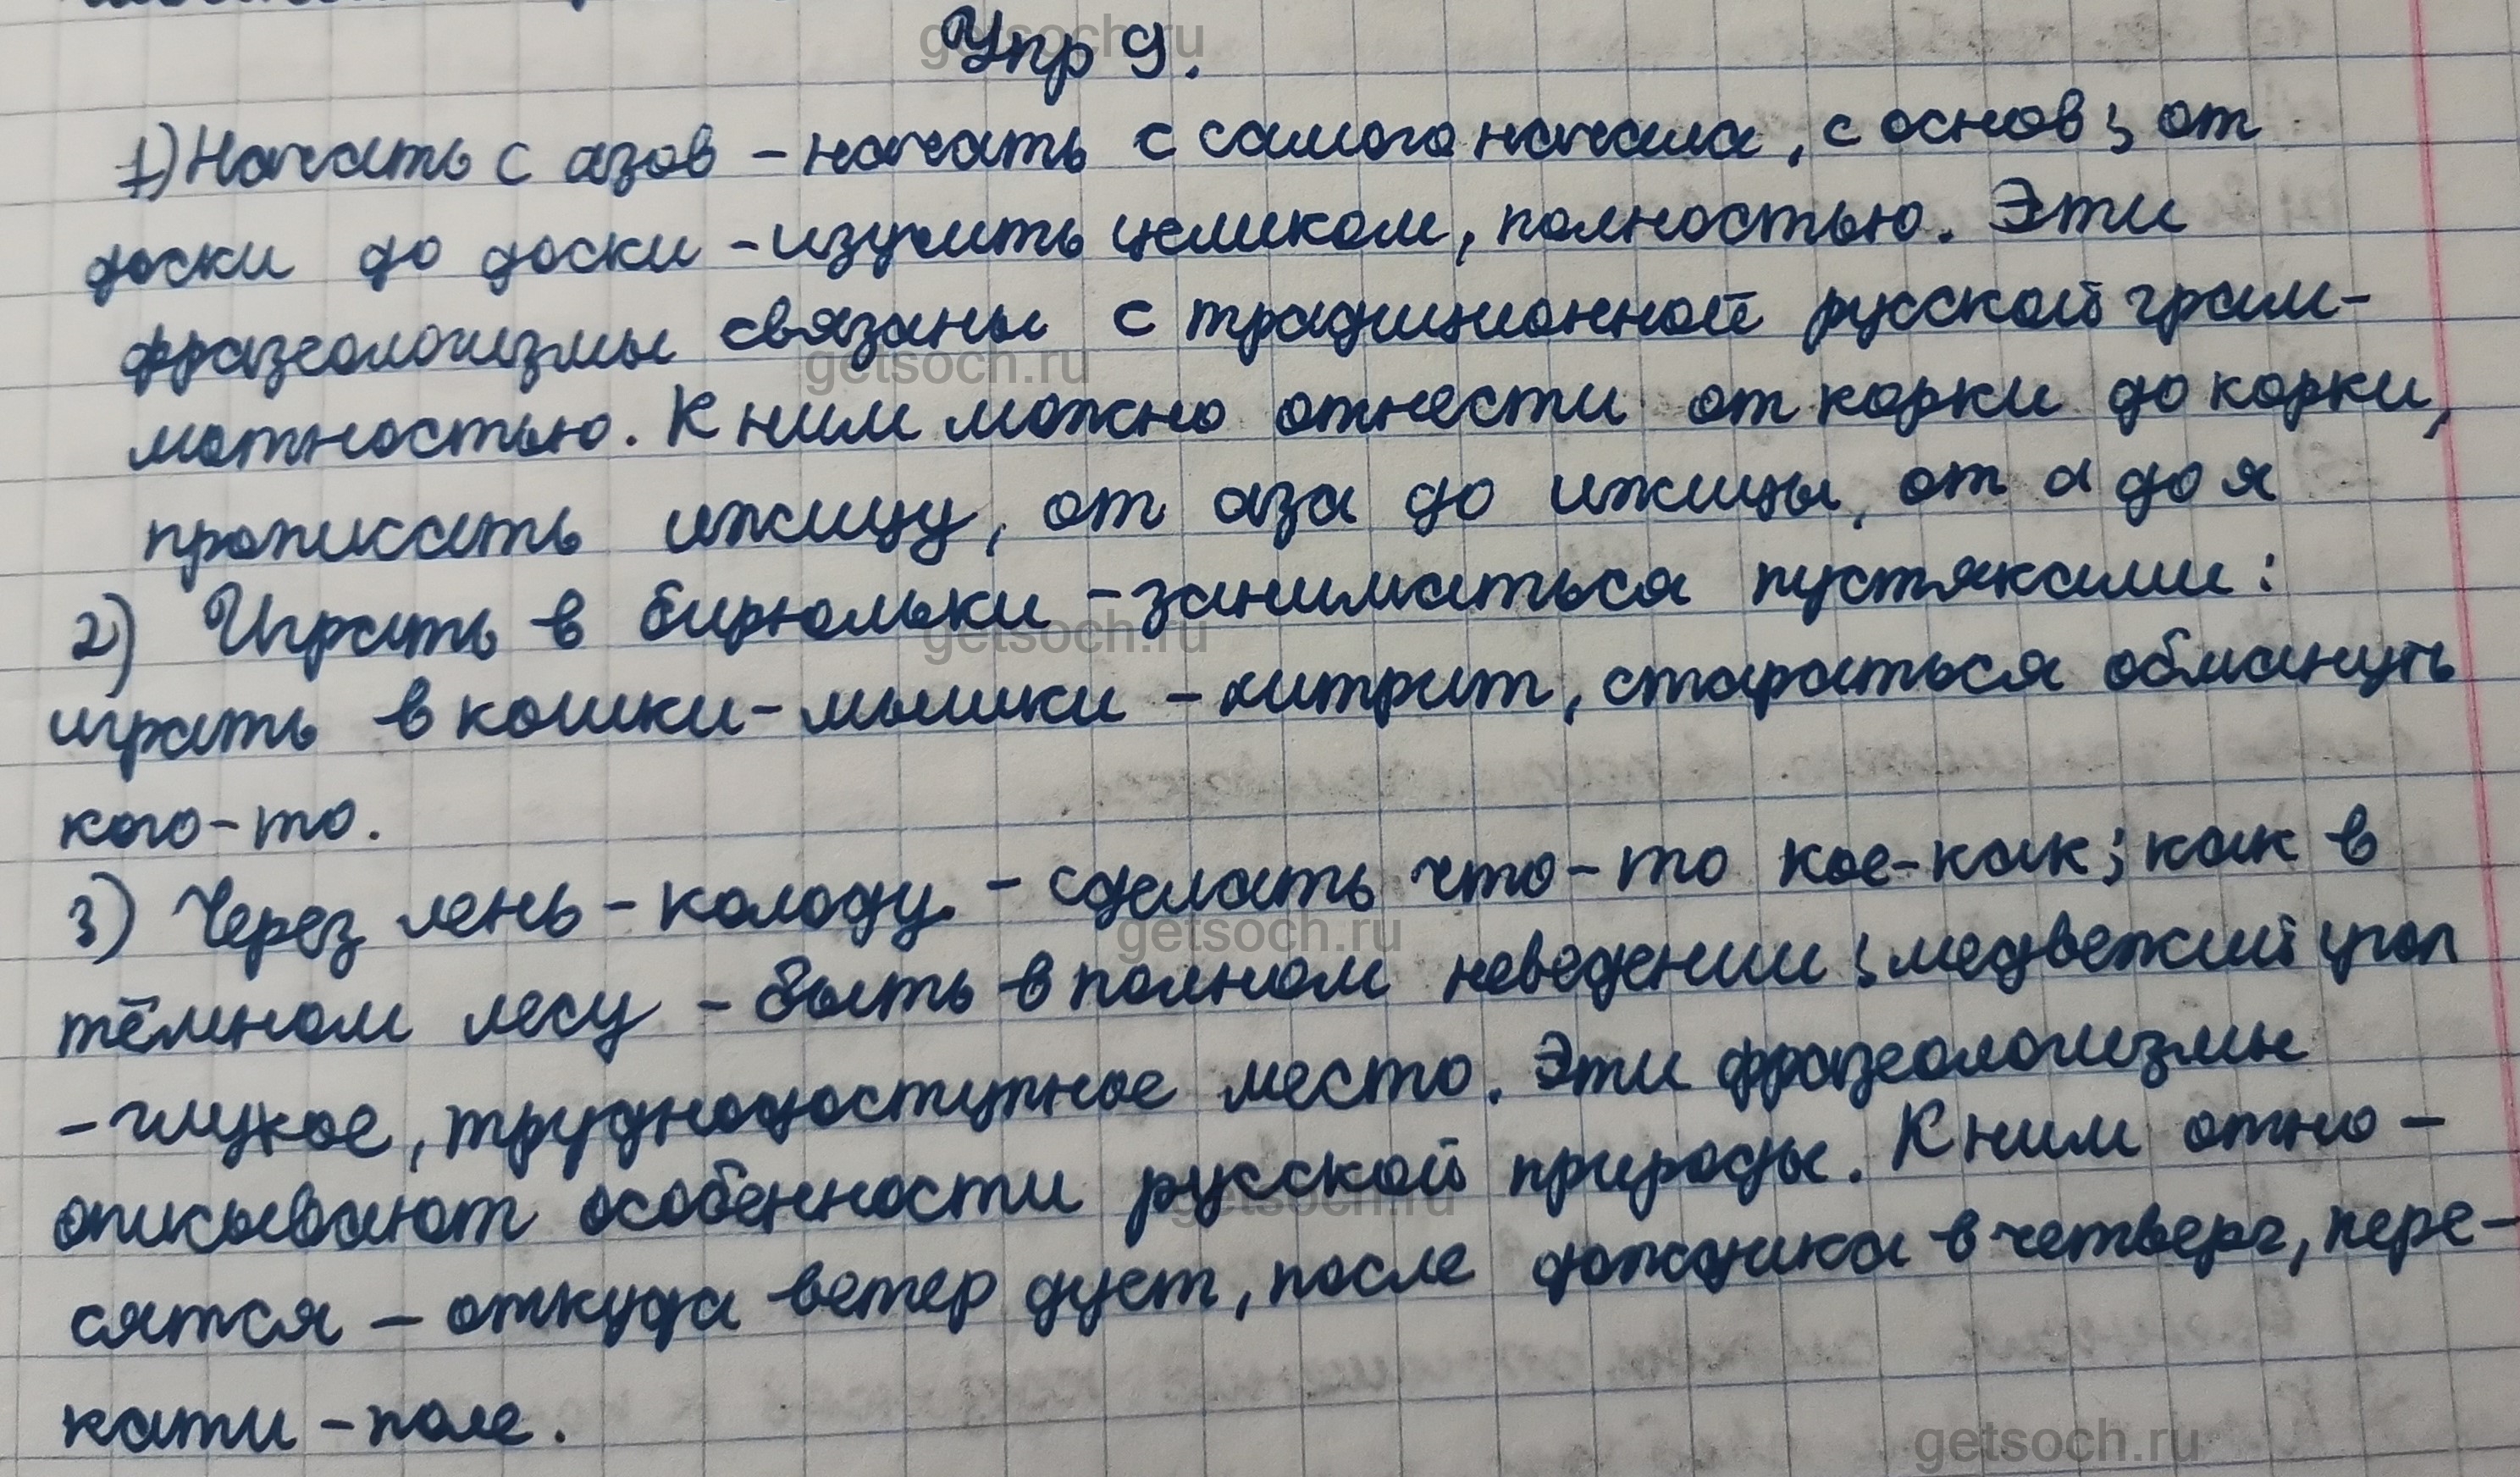 Упр 9.
1) Начать с азов - начать с самого начала, с основ; от
доски до доски - изучить целиком, полностью. Эти
фразеологизмы связаны с традиционной русской грам-
мотностью. К ним можно отнести от корки до корки,
прописать ижицу, от аза до ижицы, от а до я
2) Играть в бирюльки - заниматься пустяками:
играть в кошки-мышки - хитрит, стараться обмануть
кого-то.
3) Через пень-колоду. - сделать что-то кое-как; как в
тёмном лесу - быть в полном неведении; медвежий угол
- глухое, труднодоступное место. Эти фразеологизмы
описывают особенности русской природы. К ним отно-
сятся - откуда ветер дует, после дождика в четверг, пере-
кати-поле.
getsoch.ru
getsoch.ru
getsoch.ru
getsoch.ru
getsoch.ru
getsoch.ru